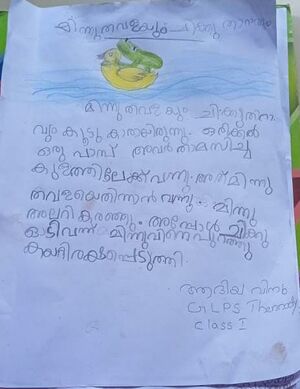 മിന്നു തവളയും ചിക്കു താറാവും
മിന്നു തവളകും ചിക്കു താറാ
വും കൂട്ടു കാരായിരുന്നു. ഒരിക്കൽ
ഒരു പാമ്പ് അവർ താമസിച്ച
കുളത്തിലേക്ക് വന്നു. അത് മിന്നു
തവളയെ തിന്നൻ വന്നു. മിന്നു
അലറി കരഞ്ഞു. അപ്പോൾ ചിക്കു
ഓടി വന്ന് മിന്നുവിനെ പുറത്തു
കയറ്റി രക്ഷപ്പെടുത്തി.
ആദിയ വിനു
GLPS
Class I